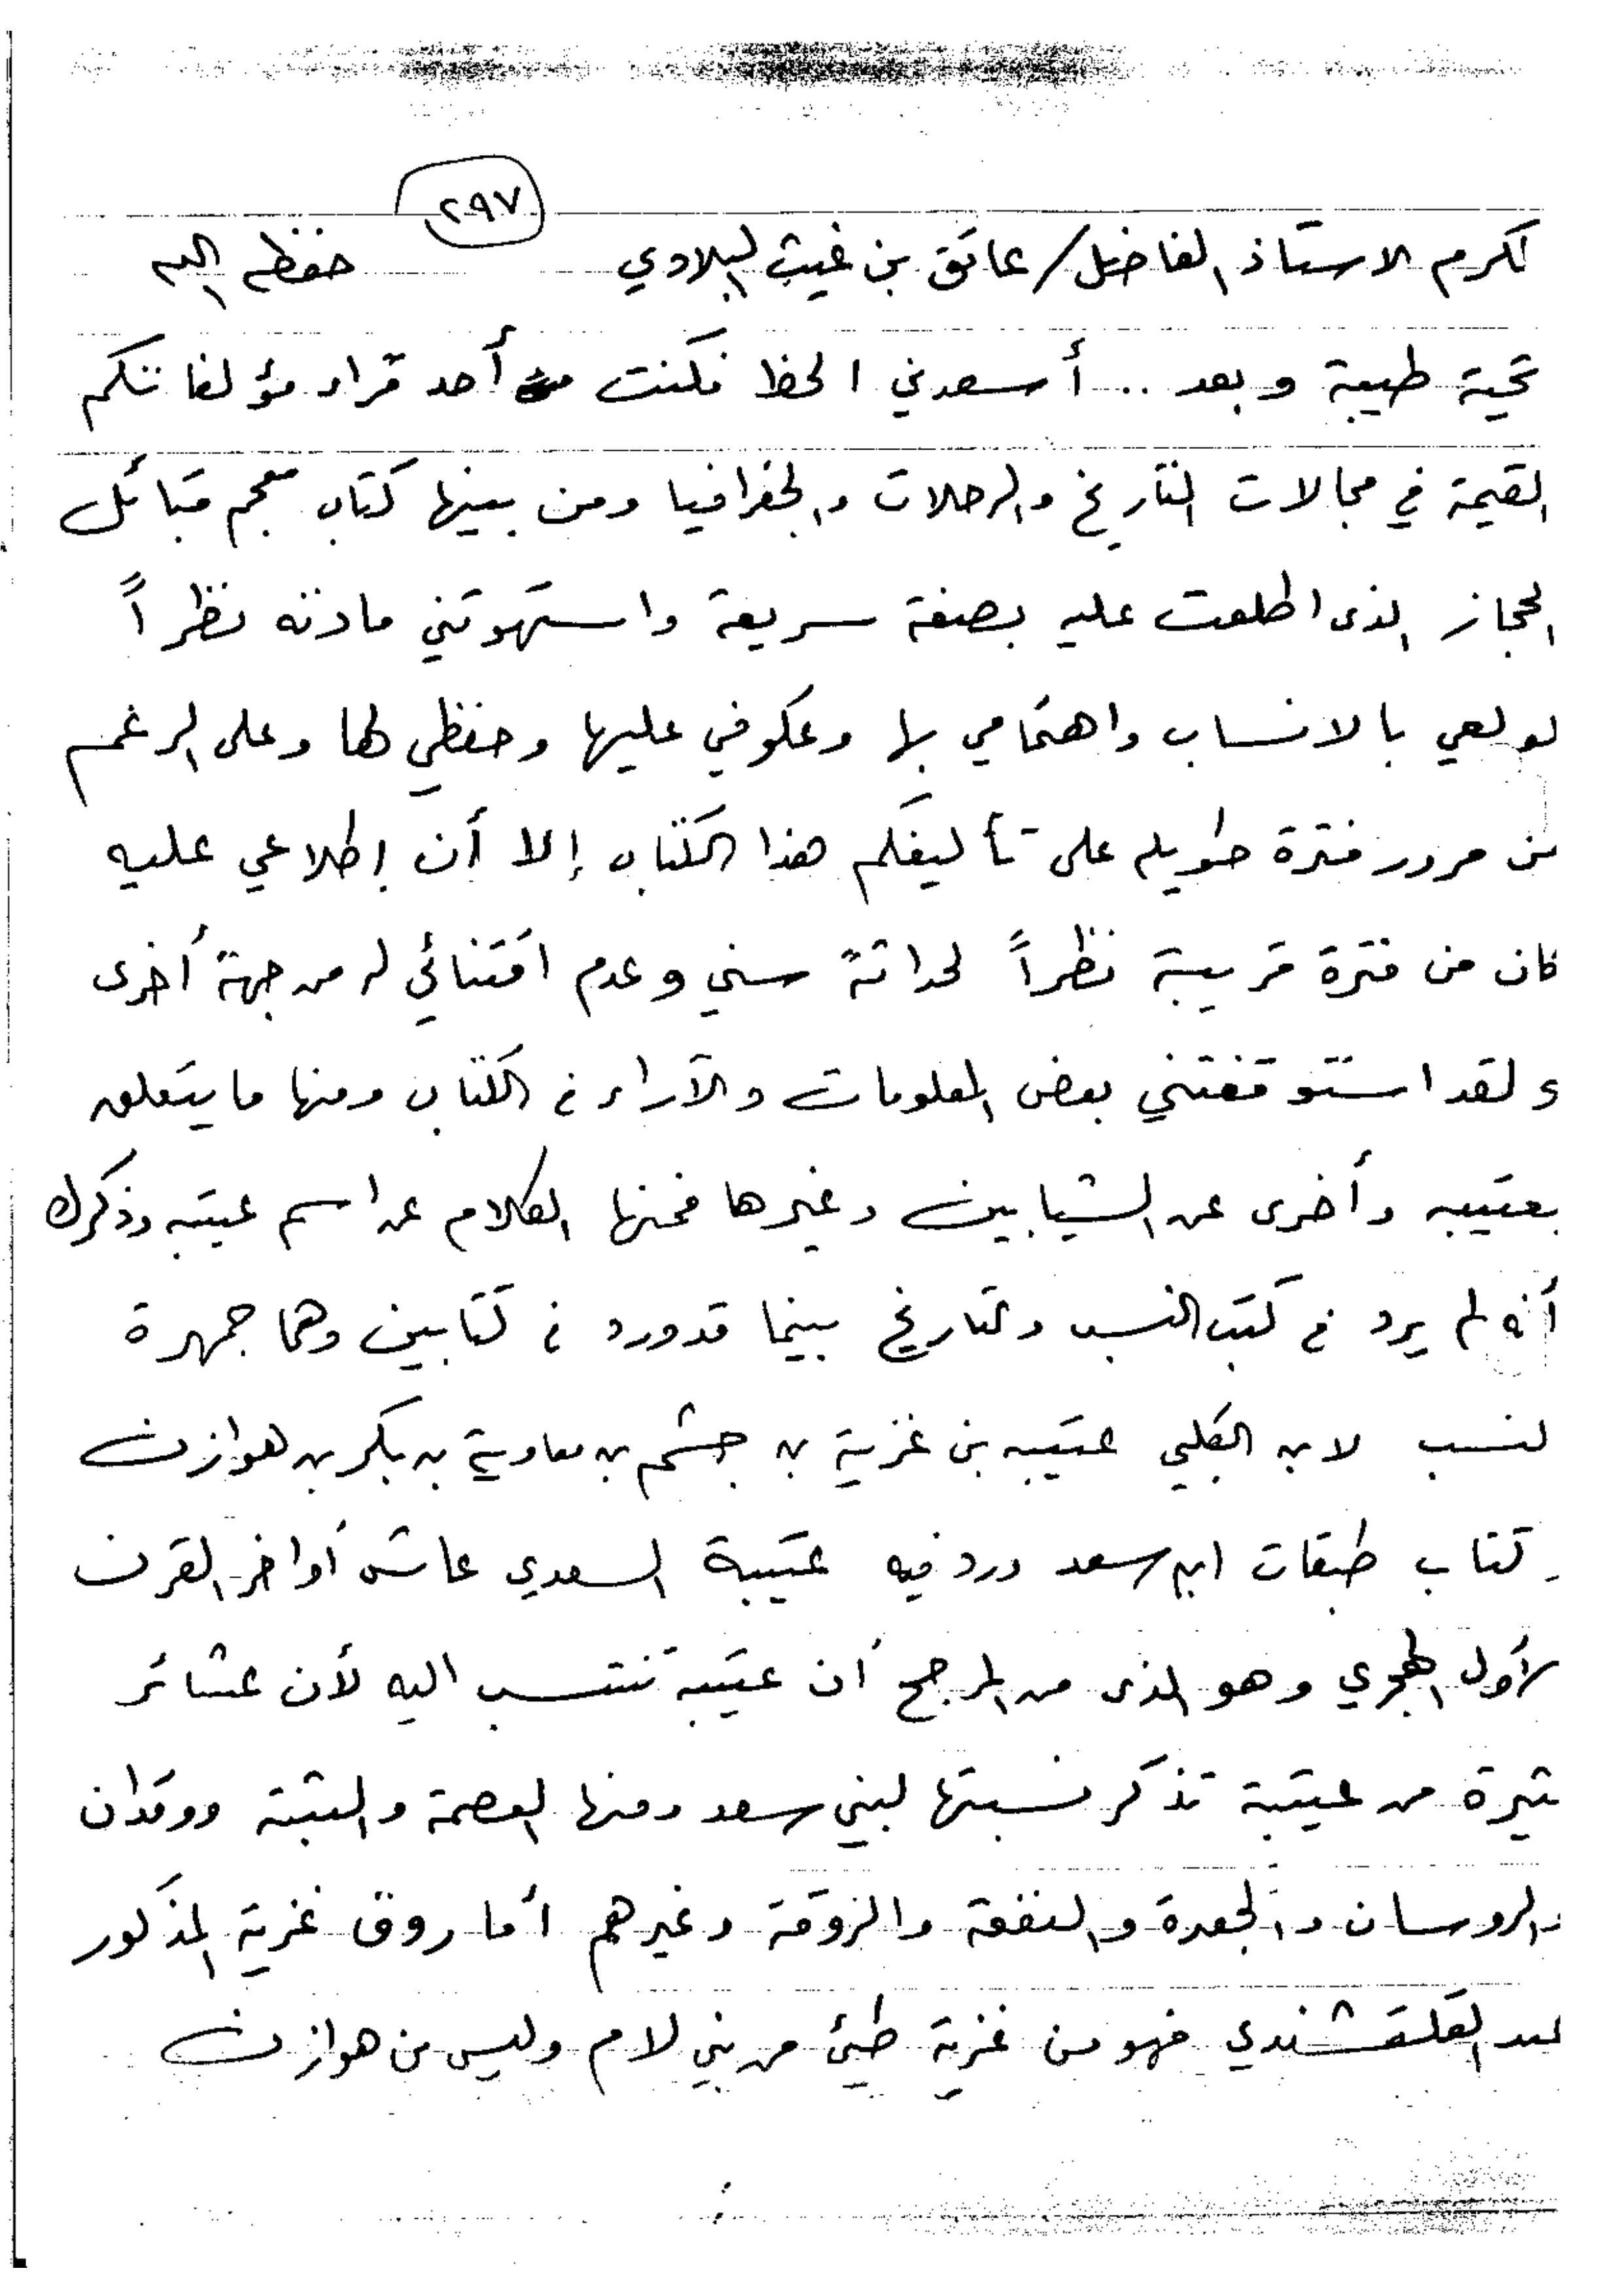 ٢٩٧
لمكرم الاستاذ الفاضل / عاتق بن غيث البلادي حفظه الله
تحية طيبة وبعد .. أسعدني الحظ فكنت أحد قراء مؤلفاتكم
القيمة في مجالات التاريخ والرحلات والجغرافيا ومن بينها كتاب معجم قبائل
الحجاز الذى اطلعت عليه بصفة سريعة واستهوتني مادته نظراً
لولعي بالانساب واهتمامي بها وعكوفي عليها وحفظي لها وعلى الرغم
من مرور فترة طويله على تأليفكم هذا الكتاب إلا أن إطلاعي عليه
كان من فترة قريبة نظراً لحداثة سني وعدم اقتنائي له من جهة أخرى
ولقد استوقفتني بعض المعلومات والآراء في الكتاب ومنها ما يتعلق
بعتيبه وأخرى عن الشيابين وغيرها فمنها الكلام عن اسم عتيبه وذكرك
أنه لم يرد في كتب النسب والتاريخ بينما قد ورد في كتابين وهما جمهرة
لنسب لابن الكلبي عتيبه بن غزية بن جشم بن معاوية بن بكر بن هوازن
كتاب طبقات ابن سعد ورد فيه عتيبة السعدي عاش أواخر القرن
لأول الهجري وهو الذى من المرجح أن عتيبه تنتسب اليه لأن عشائر
ثيرة من عتيبة تذكر نسبتها لبني سعد ومنها العصمة والثبتة ووقدان
والروسان والجعدة والنفعة والزوقة وغيرهم أما روق غزية المذكور
عند القلقشندي فهو من غزية طيئ من بني لام وليس من هوازن